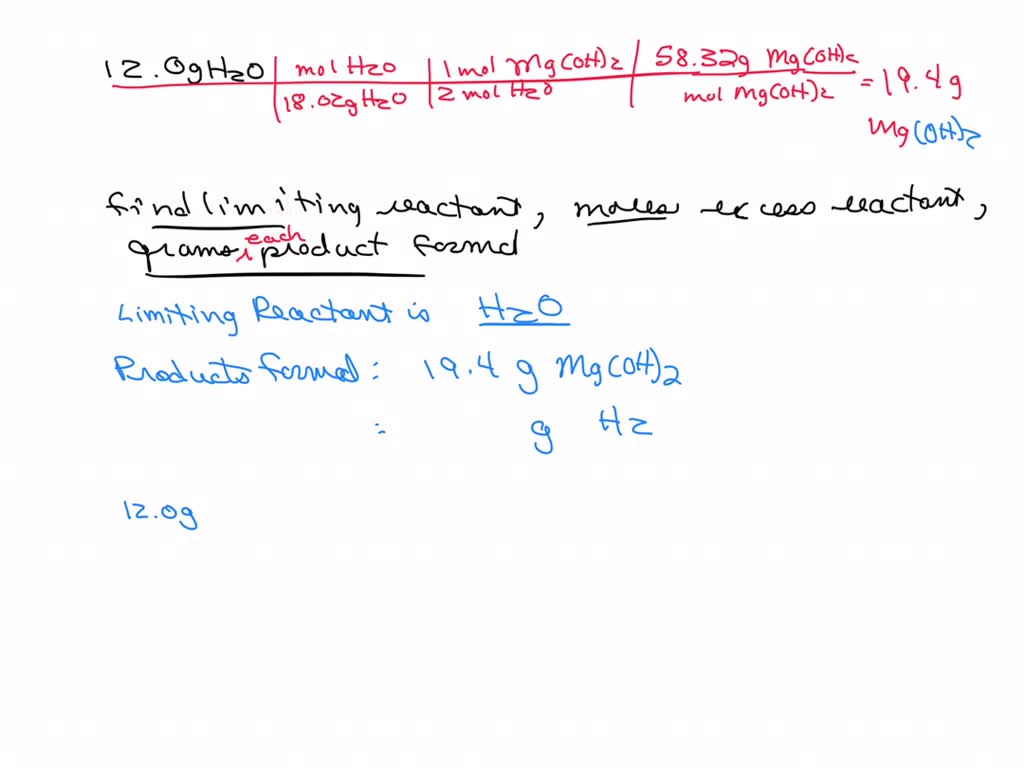 12.0gH2O | mol H2O | 1 mol Mg(OH)2 | 58.32g Mg(OH)2
18.02gH2O | 2 mol H2O | mol Mg(OH)2 = 19.4g
Mg(OH)2
find limiting reactant, moles excess reactant,
grams each product formd
Limiting Reactant is H2O
Products formd: 19.4 g Mg(OH)2
= g H2
12.0g